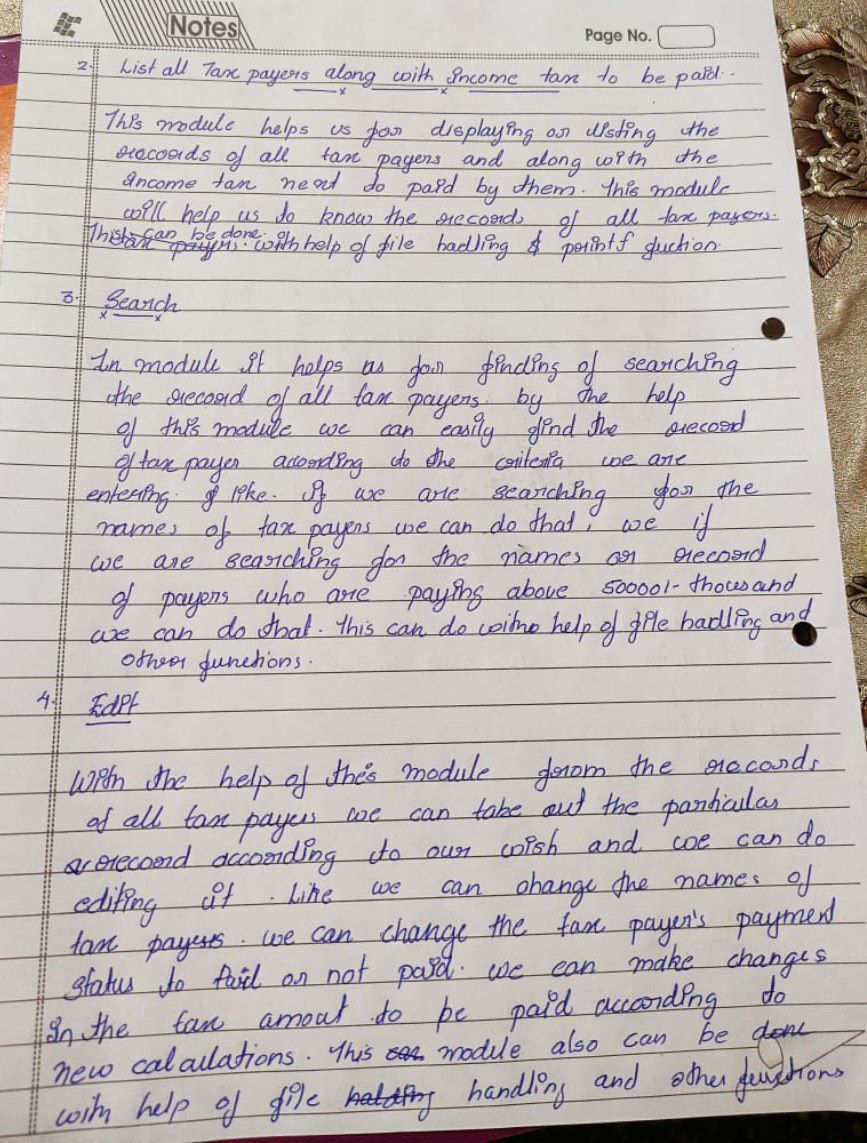 Notes
Page No.
2. List all Tax payers along with income tax to be paid.
This module helps us for displaying or listing the
records of all tax payers and along with the
income tax next do paid by them. This module
will help us to know the records of all tax payers.
This can be done. with help of file hadling & printf fuction.
3. Search
In module it helps us for finding of searching
the record of all tax payers. by the help
of this module we can easily find the record
of tax payer according to the criteria we are
entering. like. if we are searching for the
names of tax payers we can do that, we if
we are searching for the names or record
of payers who are paying above 50000/- thousand
we can do that. This can do withe help of file hadling and
other functions.
4. Edit
With the help of this module from the records
of all tax payers we can take out the particular
record according to our wish and we can do
editing it. Like we can change the names of
tax payers. we can change the tax payer's payment
status to Paid or not paid. we can make changes
in the tax amout to be paid according to
new calculations. This module also can be done
with help of file handling and other functions